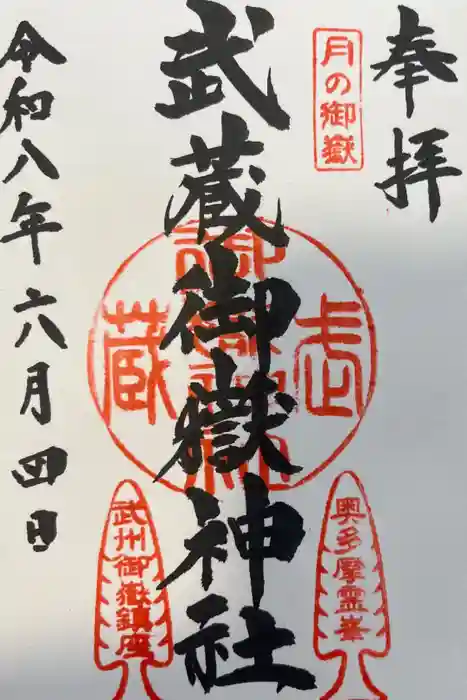 奉拝
月の御嶽
武蔵御嶽神社
武
蔵
奥多摩霊峯
武州御嶽鎮座
令和八年六月四日